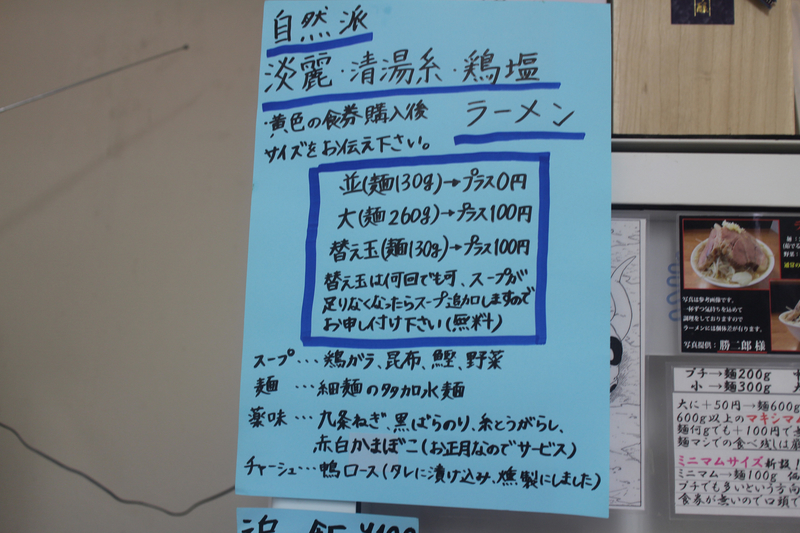 自然派
淡麗・清湯系・鶏塩
ラーメン
黄色の食券購入後
サイズをお伝え下さい。
並(麺130g)→プラス0円
大(麺260g)→プラス100円
替え玉(麺130g)→プラス100円
替え玉は何回でも可、スープが
足りなくなったらスープ追加しますので
お申し付け下さい(無料)
スープ…鶏ガラ、昆布、鰹、野菜
麺…細麺の多加水麺
薬味…九条ねぎ、黒ばらのり、糸とうがらし、
赤白かまぼこ(お正月なのでサービス)
チャーシュー…鴨ロース(タレに漬け込み、燻製にしました)
写真は参考画像です。
一杯ずつ気持を込めて
調理をしておりますので
ラーメンには個体差が有ります。
写真提供:勝二郎 様
プチ→麺200g
小→麺300g
大に+50円→麺600g
600g以上のマキシマム
麺何gでも+100円で
麺マシでの食べ残しは
ミニマムサイズ新設!
ミニマム→麺100g
プチでも多いという方向
食券が無いので口頭で